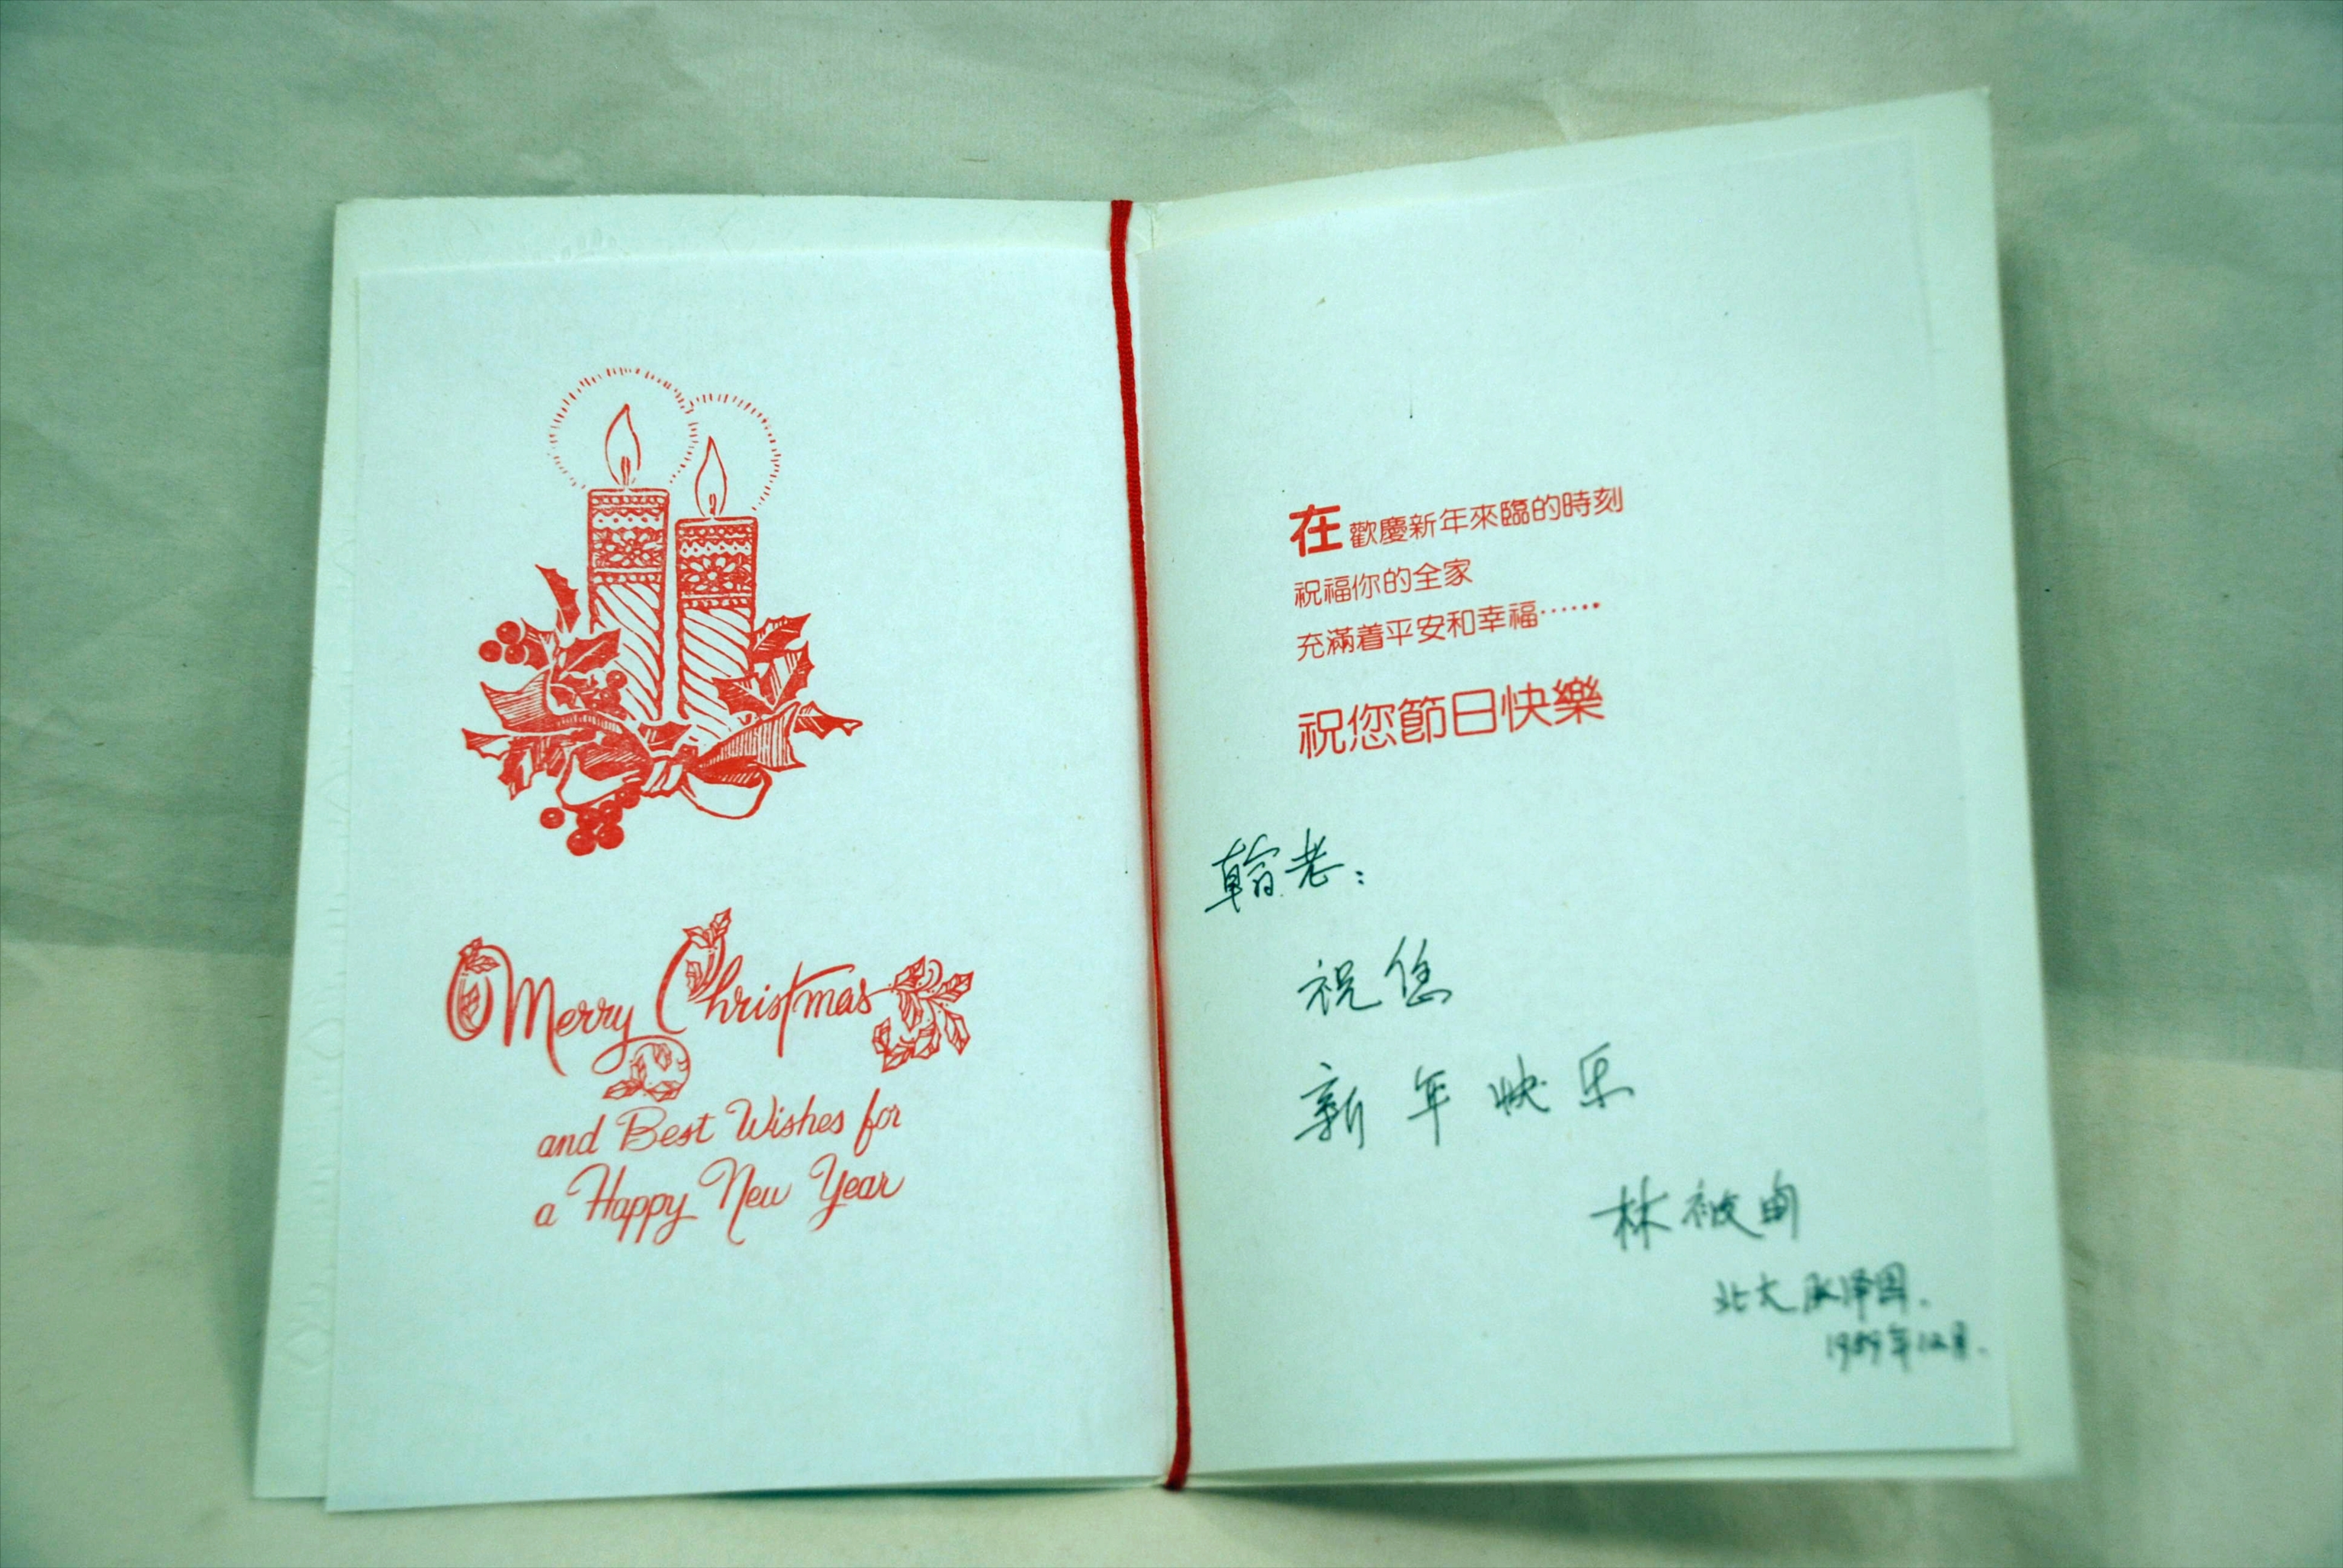 Merry Christmas
and Best Wishes for
a Happy New Year
在歡慶新年來臨的時刻
祝福你的全家
充滿着平安和幸福……
祝您節日快樂
翰老：
祝您
新年快乐
林被甸
北大承泽园.
1989年12月.